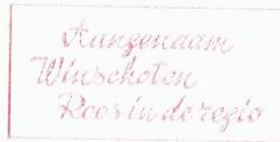 Aangenaam
Winschoten
Roos in de regio